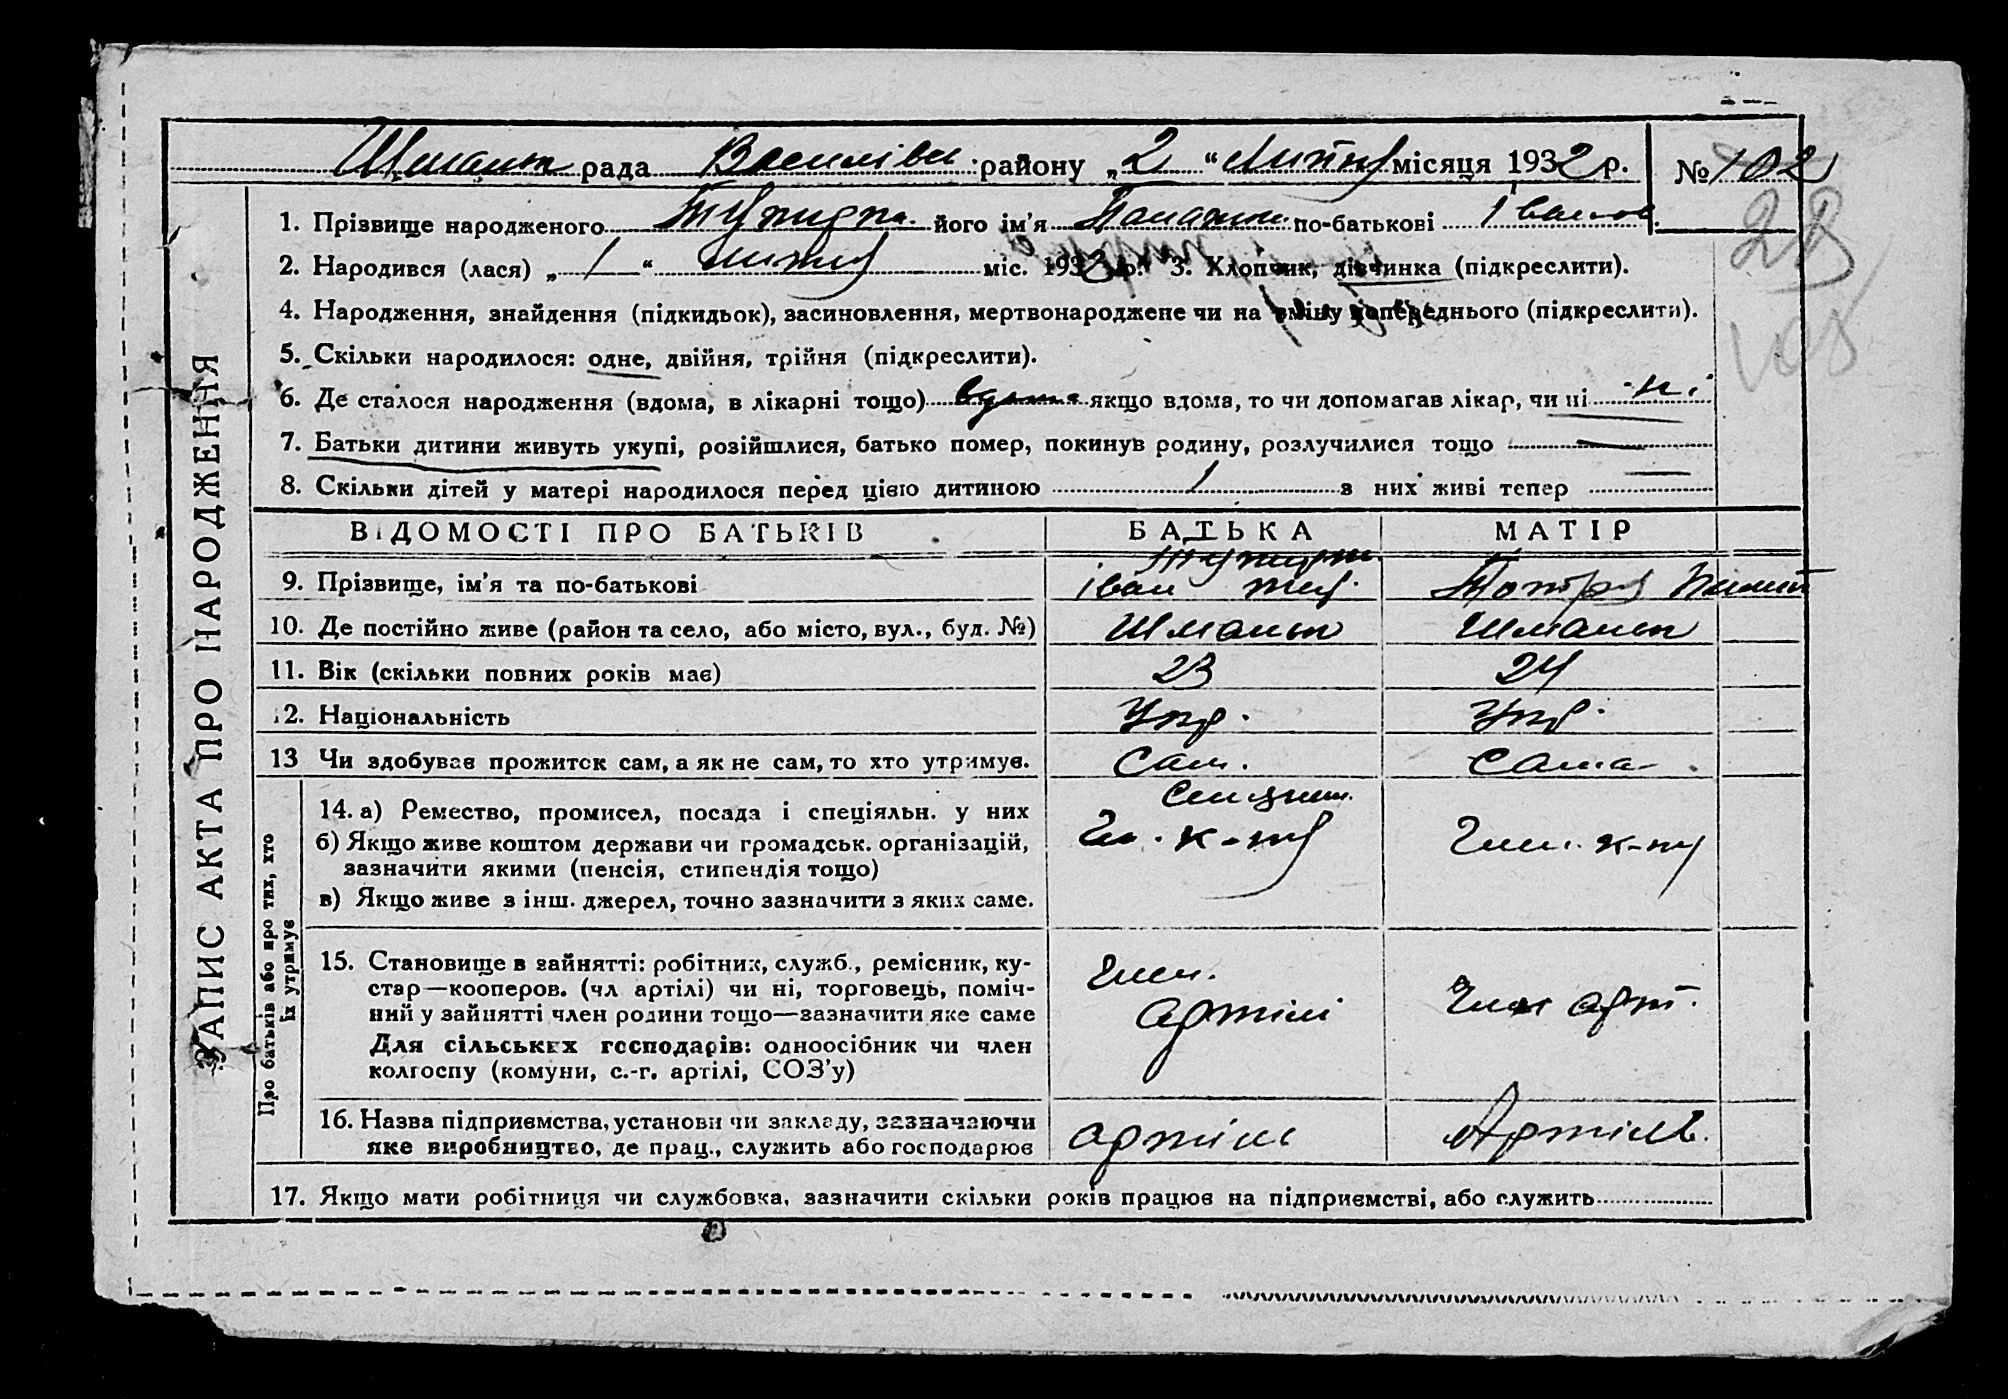 рада Василівс. району „2“ липня місяця 1932 р. № 102
28
108
ЗАПИС АКТА ПРО НАРОДЖЕННЯ
1. Прізвище народженого його ім'я по-батькові Іванов.
2. Народився (лася) „1“ липня міс. 1932 р. 3. Хлопчик, дівчинка (підкреслити).
4. Народження, знайдення (підкидьок), засиновлення, мертвонароджене чи на зміну попереднього (підкреслити).
5. Скільки народилося: одне, двійня, трійня (підкреслити).
6. Де сталося народження (вдома, в лікарні тощо) вдома якщо вдома, то чи допомагав лікар, чи ні ні
7. Батьки дитини живуть укупі, розійшлися, батько помер, покинув родину, розлучилися тощо —
8. Скільки дітей у матері народилося перед цією дитиною 1 з них живі тепер —
ВІДОМОСТІ ПРО БАТЬКІВ БАТЬКА МАТІР
9. Прізвище, ім'я та по-батькові Іван
10. Де постійно живе (район та село, або місто, вул., буд. №) Шмальк Шмальк
11. Вік (скільки повних років має) 23 24
12. Національність Укр. Укр.
13 Чи здобуває прожиток сам, а як не сам, то хто утримує. Сам. Сама
Про батьків або про тих, хто їх утримує
14. а) Ремество, промисел, посада і спеціяльн. у них
б) Якщо живе коштом держави чи громадськ. організацій, Чл. к-пу Член. к-пу
зазначити якими (пенсія, стипендія тощо)
в) Якщо живе з інш. джерел, точно зазначити з яких саме.
15. Становище в зайнятті: робітник, служб., ремісник, ку-
стар—кооперов. (чл артілі) чи ні, торговець, поміч- Член. артілі Член арт.
ний у зайнятті член родини тощо—зазначити яке саме
Для сільських господарів: одноосібник чи член
колгоспу (комуни, с.-г. артілі, СОЗ'у)
16. Назва підприємства, установи чи закладу, зазначаючи
яке виробництво, де прац., служить або господарює артіль Артіль.
17. Якщо мати робітниця чи службовка, зазначити скільки років працює на підприємстві, або служить